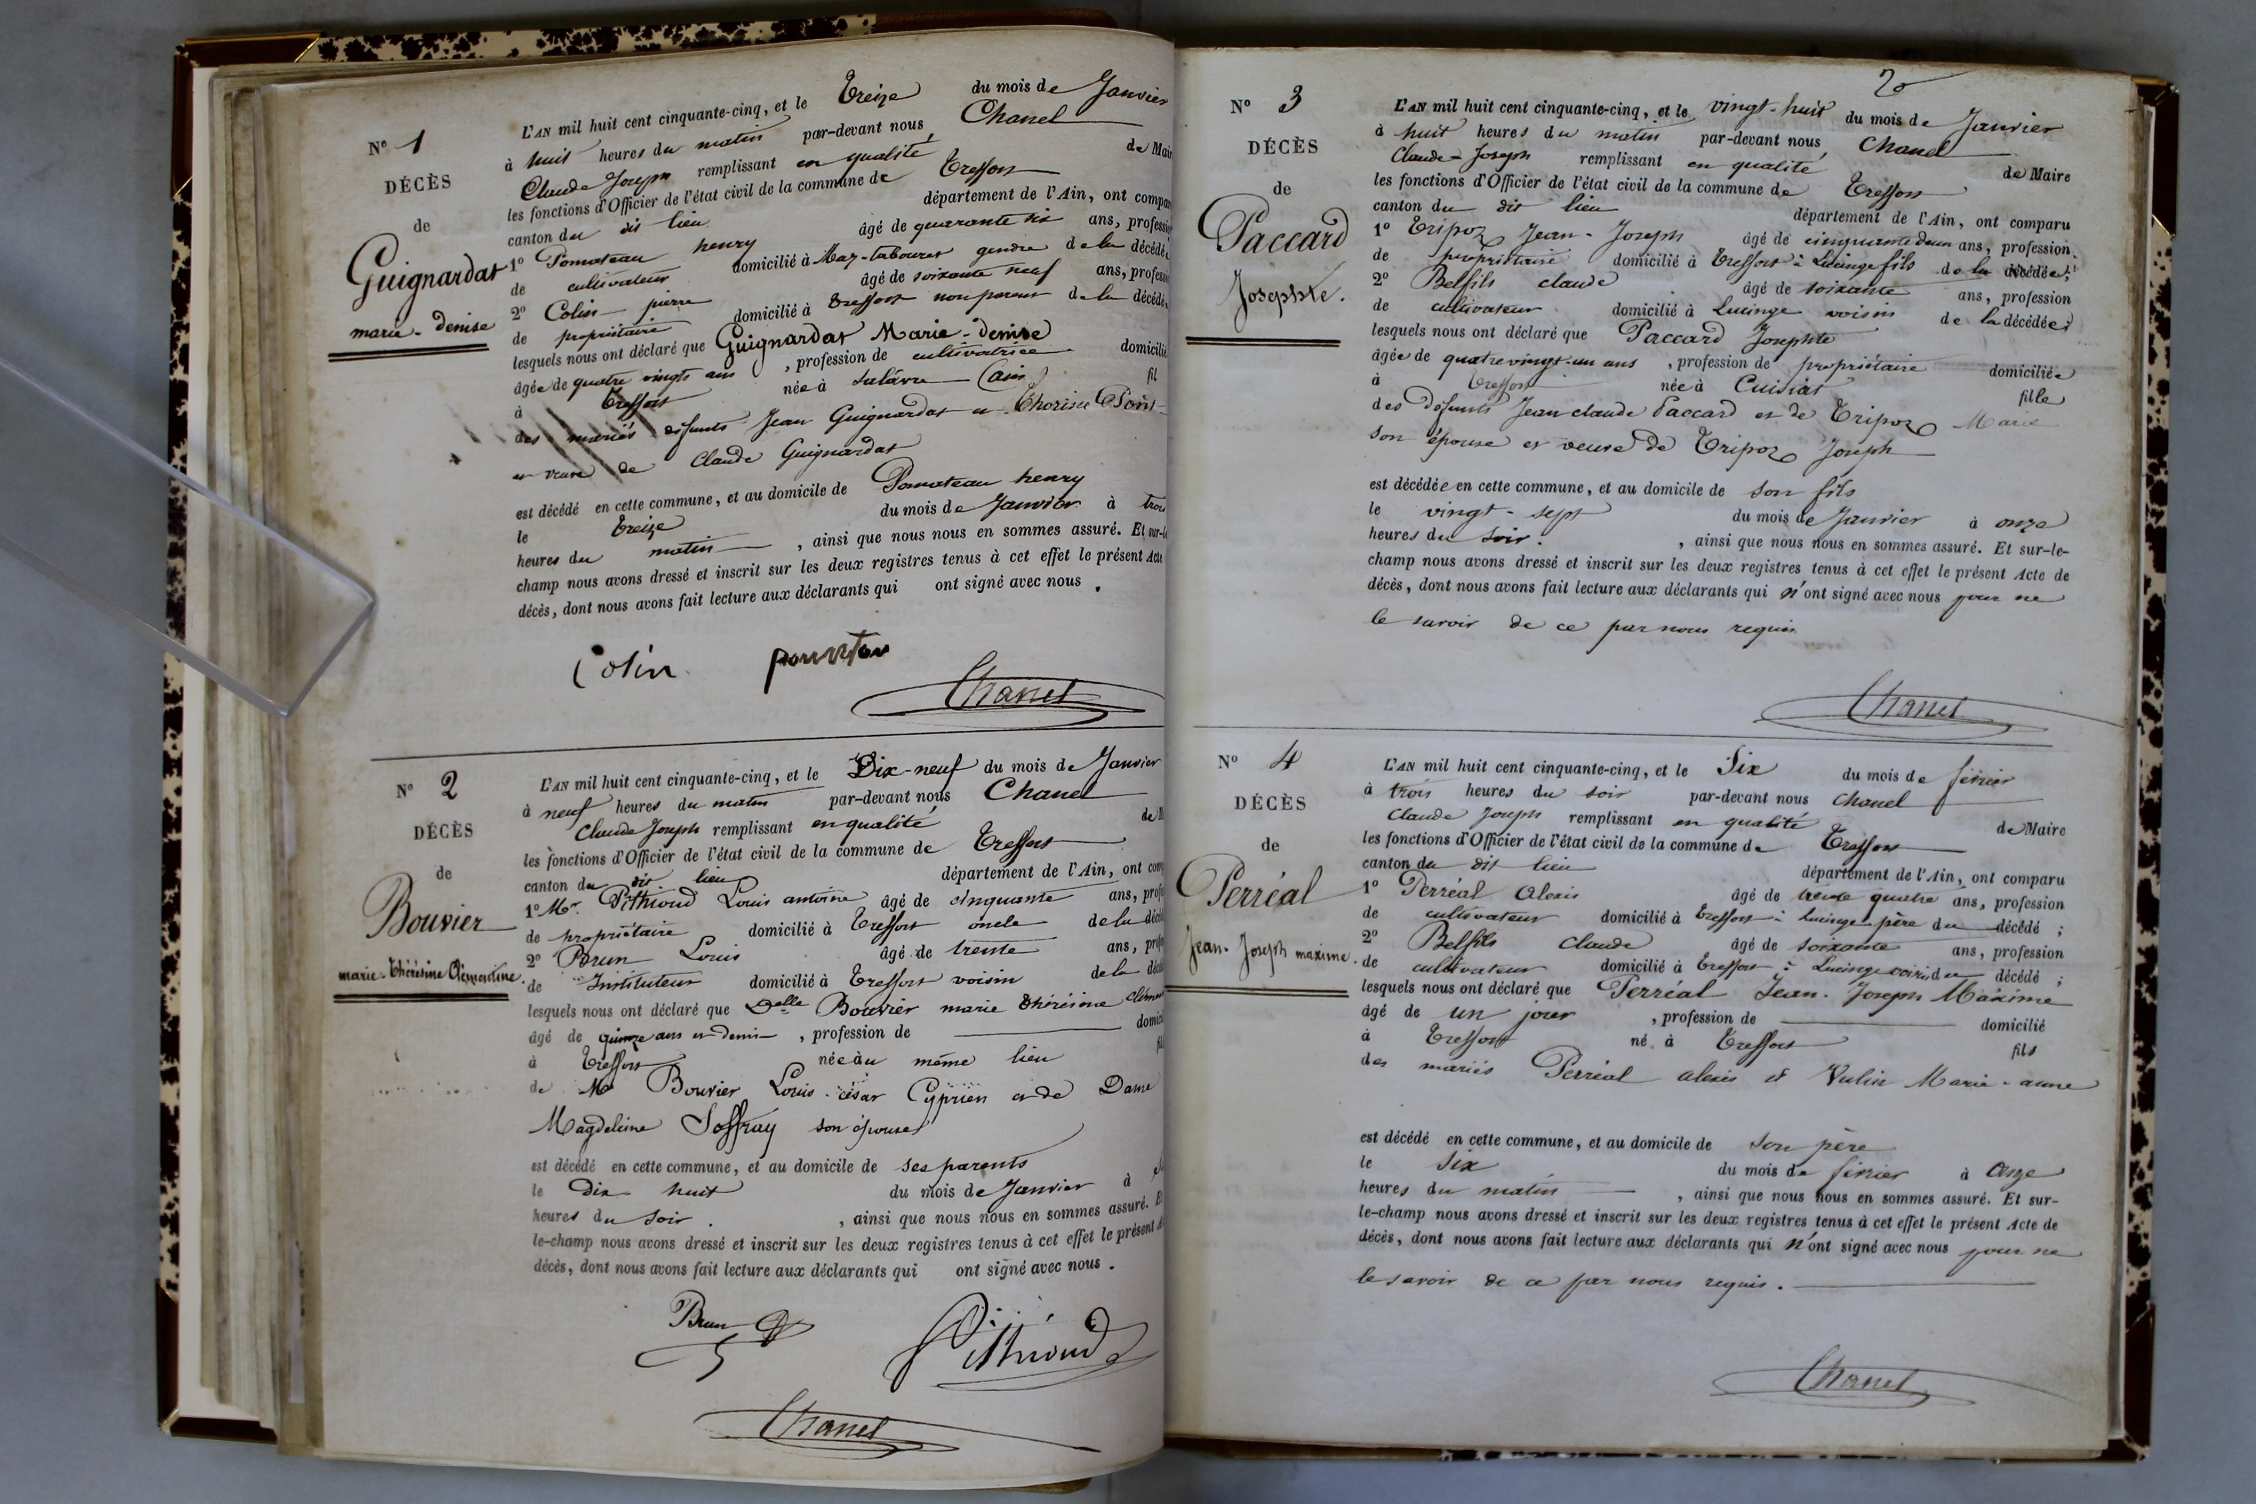 Nº 1
DÉCÈS
de
Guignardat
marie-denise
L'AN mil huit cent cinquante-cinq, et le Treize du mois de Janvier
à huit heures du matin par-devant nous Chanel
Claude Joseph remplissant en qualité de Mair
les fonctions d'Officier de l'état civil de la commune de Treffort
canton du dit lieu département de l'Ain, ont compar
1º Pomateau henry âgé de quarante six ans, profession
de cultivateur domicilié à Mas-tabouret gendre de la décédé
2º Colin pierre âgé de soixante neuf ans, profess
de propriétaire domicilié à Treffort non parent de la décédé
lesquels nous ont déclaré que Guignardat Marie-denise
âgée de quatre vingts ans, profession de cultivatrice domicilié
à Treffort née à Salavre (ain) fil
des mariés défunts Jean Guignardat et Thorine Pont-
et veuve de Claude Guignardat
est décédé en cette commune, et au domicile de Pomateau henry
le treize du mois de Janvier à trois
heures du matin, ainsi que nous nous en sommes assuré. Et sur-le
champ nous avons dressé et inscrit sur les deux registres tenus à cet effet le présent Acte
décès, dont nous avons fait lecture aux déclarants qui ont signé avec nous.
Colin
Chanel
Nº 2
DÉCÈS
de
Bouvier
marie-thérésine Clémentine.
L'AN mil huit cent cinquante-cinq, et le Dix-neuf du mois de Janvier
à neuf heures du matin par-devant nous Chanel
Claude Joseph remplissant en qualité de M
les fonctions d'Officier de l'état civil de la commune de Treffort
canton du dit lieu département de l'Ain, ont com
1º Mr. Pithioud Louis antoine âgé de cinquante ans, profe
de propriétaire domicilié à Treffort oncle de la décé
2º Brun Louis âgé de trente ans, profe
de Instituteur domicilié à Treffort voisin de la décé
lesquels nous ont déclaré que Delle Bouvier marie thérésine Clémen
âgé de quinze ans et demi, profession de domici
à Treffort née au même lieu fil
de Mr Bouvier Louis-césar Cyprien et de Dame
Magdeleine Soffray son épouse
est décédé en cette commune, et au domicile de ses parents
le dix huit du mois de Janvier à
heures du soir., ainsi que nous nous en sommes assuré. Et
le-champ nous avons dressé et inscrit sur les deux registres tenus à cet effet le présent A
décès, dont nous avons fait lecture aux déclarants qui ont signé avec nous.
Brun
Pithioud
Chanel
Nº 3
DÉCÈS
de
Paccard
Josephte.
L'AN mil huit cent cinquante-cinq, et le vingt-huit du mois de Janvier
à huit heures du matin par-devant nous Chanel
Claude-Joseph remplissant en qualité de Maire
les fonctions d'Officier de l'état civil de la commune de Treffort
canton du dit lieu département de l'Ain, ont comparu
1º Tripoz Jean-Joseph âgé de cinquante deux ans, profession
de propriétaire domicilié à Treffort à Lucinge fils de la décédée;
2º Belfils claude âgé de soixante ans, profession
de cultivateur domicilié à Lucinge voisin de la décédée;
lesquels nous ont déclaré que Paccard Josephte
âgée de quatre vingt-un ans, profession de propriétaire domiciliée
à Treffort née à Cuisiat fille
des défunts Jean claude Paccard et de Tripoz Marie
son épouse et veuve de Tripoz Joseph
est décédée en cette commune, et au domicile de son fils
le vingt-sept du mois de Janvier à onze
heures du soir., ainsi que nous nous en sommes assuré. Et sur-le-
champ nous avons dressé et inscrit sur les deux registres tenus à cet effet le présent Acte de
décès, dont nous avons fait lecture aux déclarants qui n'ont signé avec nous pour ne
le savoir de ce par nous requis
Chanel
Nº 4
DÉCÈS
de
Perréal
Jean-Joseph maxime.
L'AN mil huit cent cinquante-cinq, et le Six du mois de février
à trois heures du soir par-devant nous Chanel
Claude Joseph remplissant en qualité de Maire
les fonctions d'Officier de l'état civil de la commune de Treffort
canton du dit lieu département de l'Ain, ont comparu
1º Perréal Alexis âgé de trente quatre ans, profession
de cultivateur domicilié à Treffort à Lucinge père du décédé;
2º Belfils Claude âgé de soixante ans, profession
de cultivateur domicilié à Treffort à Lucinge voisin du décédé;
lesquels nous ont déclaré que Perréal Jean-Joseph Maxime
âgé de un jour, profession de domicilié
à Treffort né à Treffort fils
des mariés Perréal alexis et Vulin Marie-anne
est décédé en cette commune, et au domicile de son père
le six du mois de février à onze
heures du matin, ainsi que nous nous en sommes assuré. Et sur-
le-champ nous avons dressé et inscrit sur les deux registres tenus à cet effet le présent Acte de
décès, dont nous avons fait lecture aux déclarants qui n'ont signé avec nous pour ne
le savoir de ce par nous requis.
Chanel